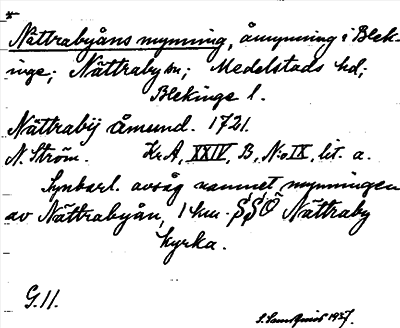 Nättrabyåns mynning, åmynning i Blek-
inge; Nättraby sn; Medelstads hd;
Blekinge l.
Nättrabÿ åmund. 1721.
N. Ström. Kr A, XXIV, B, No IX, lit. a.
Synbarl. avsåg namnet mynningen
av Nättrabyån, 1 km. SSO Nättraby
kyrka.
G. 11.
1937.